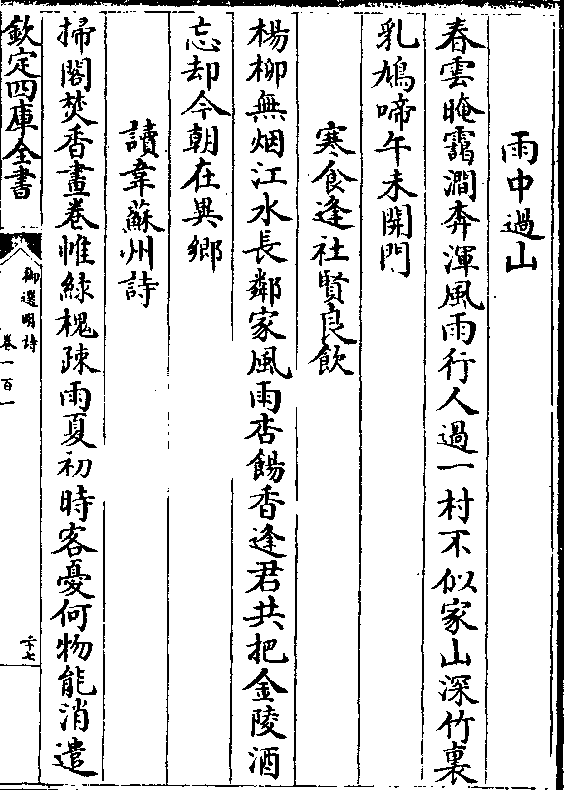 雨中過山
春雲晻靄澗奔渾風雨行人過一村不似家山深竹裏
乳鳩啼午未開門
寒食逢社賢良飲
楊柳無烟江水長鄰家風雨杏餳香逢君共把金陵酒
忘却今朝在異鄉
讀韋蘇州詩
掃閣焚香晝卷帷綠槐疎雨夏初時客憂何物能消遣
欽定四庫全書
御選明詩
卷一百一
三十七